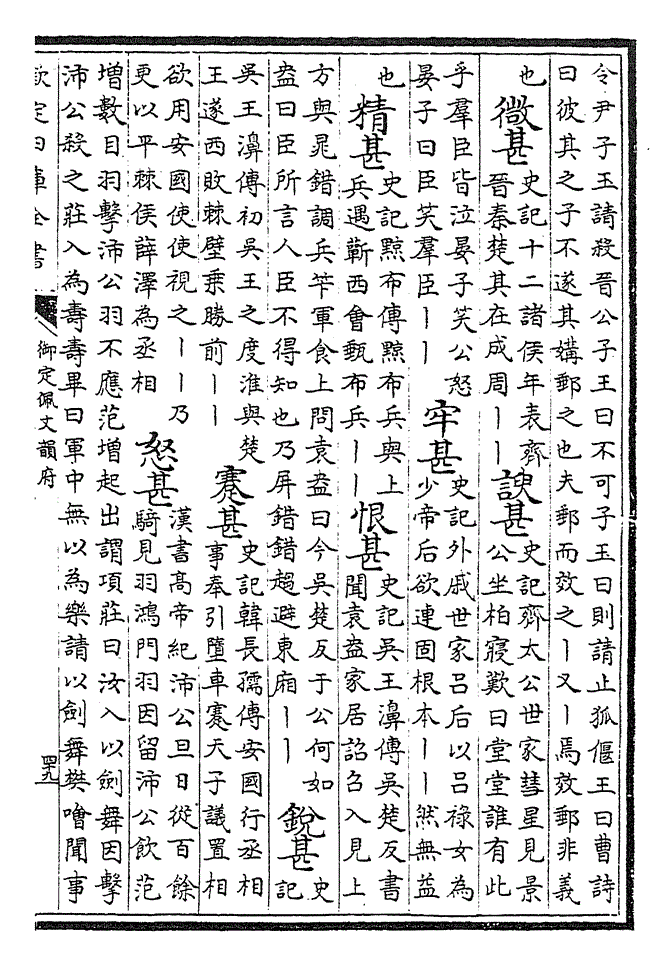 令尹子玉請殺晉公子王曰不可子玉曰則請止狐偃王曰曹詩
曰彼其之子不遂其媾郵之也夫郵而效之丨又丨焉效郵非義
也
微甚
史記十二諸侯年表齊
晉秦楚其在成周丨丨
諛甚
史記齊太公世家彗星見景
公坐柏寢歎曰堂堂誰有此
乎羣臣皆泣晏子笑公怒
晏子曰臣笑羣臣丨丨
牢甚
史記外戚世家呂后以呂祿女為
少帝后欲連固根本丨丨然無益
也
精甚
史記黥布傳黥布兵與上
兵遇蘄西會甀布兵丨丨
恨甚
史記吳王濞傳吳楚反書
聞袁盎家居詔召入見上
方與晁錯調兵筭軍食上問袁盎曰今吳楚反于公何如
盎曰臣所言人臣不得知也乃屏錯錯趨避東廂丨丨
銳甚
史
記
吳王濞傳初吳王之度淮與楚
王遂西敗棘壁乘勝前丨丨
蹇甚
史記韓長孺傳安國行丞相
事奉引墮車蹇天子議置相
欲用安國使使視之丨丨乃
更以平棘侯薛澤為丞相
怒甚
漢書高帝紀沛公旦日從百餘
騎見羽鴻門羽因留沛公飲范
增數目羽擊沛公羽不應范增起出謂項莊曰汝入以劍舞因擊
沛公殺之莊入為壽壽畢曰軍中無以為樂請以劍舞樊噲聞事
欽定四庫全書
御定佩文韻府
四十九